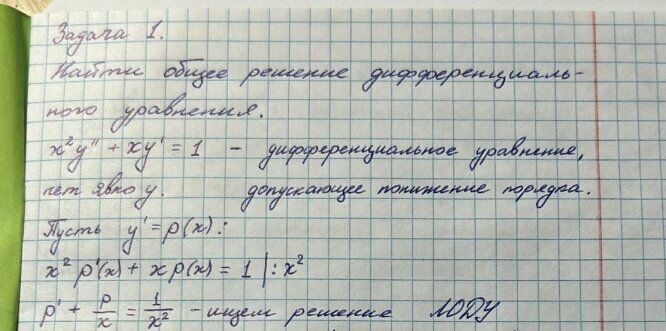 Задача 1.
Найти общее решение дифференциаль-
ного уравнения.
x²y'' + xy' = 1 - дифференциальное уравнение,
нет явно y. допускающее понижение порядка.
Пусть y' = p(x):
x² p'(x) + xp(x) = 1 |: x²
p' + p/x = 1/x² - ищем решение ЛОДУ